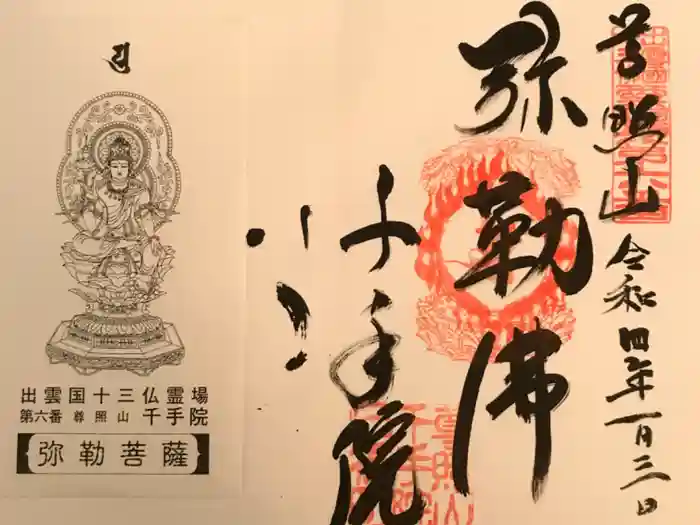 尊照山
令和四年一月三日
弥勒佛
千手院
出雲国十三仏霊場
第六番 尊照山 千手院
弥勒菩薩